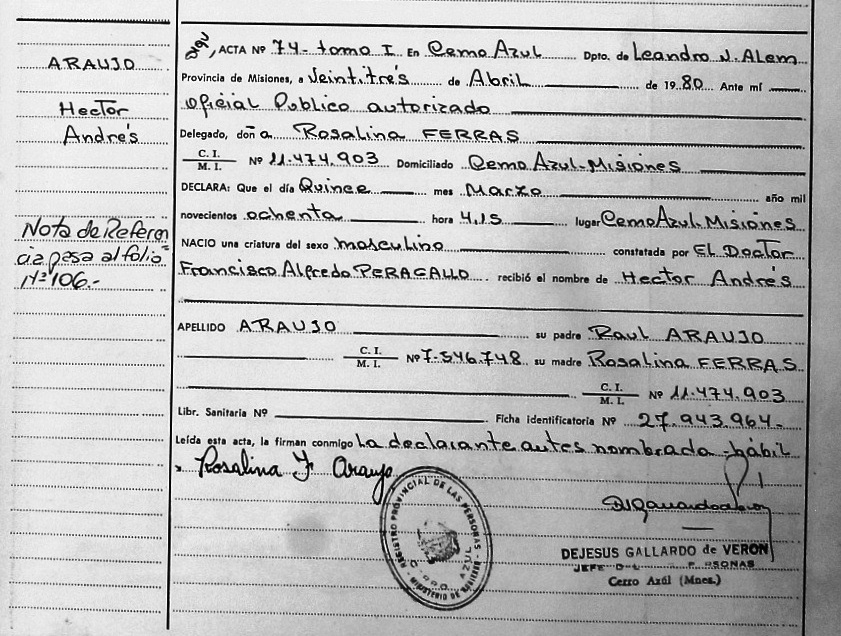 ARAUJO
Hector
Andrés
Nota de Referen
cia pasa al folio
Nº 106.-
ACTA Nº 74- tomo I En Cerro Azul Dpto. de Leandro N. Alem
Provincia de Misiones, a Veintitrés de Abril de 1980 Ante mí
Oficial Publico autorizado
Delegado, doña Rosalina FERRAS
C. I.
M. I. Nº 11.474.903 Domiciliado Cerro Azul-Misiones
DECLARA: Que el día Quince mes Marzo año mil
novecientos ochenta hora 4,15 lugar Cerro Azul. Misiones
NACIO una criatura del sexo masculino constatada por El Doctor
Francisco Alfredo PERAGALLO recibió el nombre de Hector Andrés
APELLIDO ARAUJO su padre Raul ARAUJO
C. I.
M. I. Nº 7.546.748 su madre Rosalina FERRAS
C. I.
M. I. Nº 11.474.903
Libr. Sanitaria Nº Ficha identificatoria Nº 27.943.964-
Leída esta acta, la firman conmigo la declarante antes nombrada hábil
Rosalina F. Araujo
REGISTRO PROVINCIAL DE LAS PERSONAS
CERRO AZUL
MINISTERIO DE
DEJESUS GALLARDO de VERON
JEFE PERSONAS
Cerro Azúl (Mnes.)